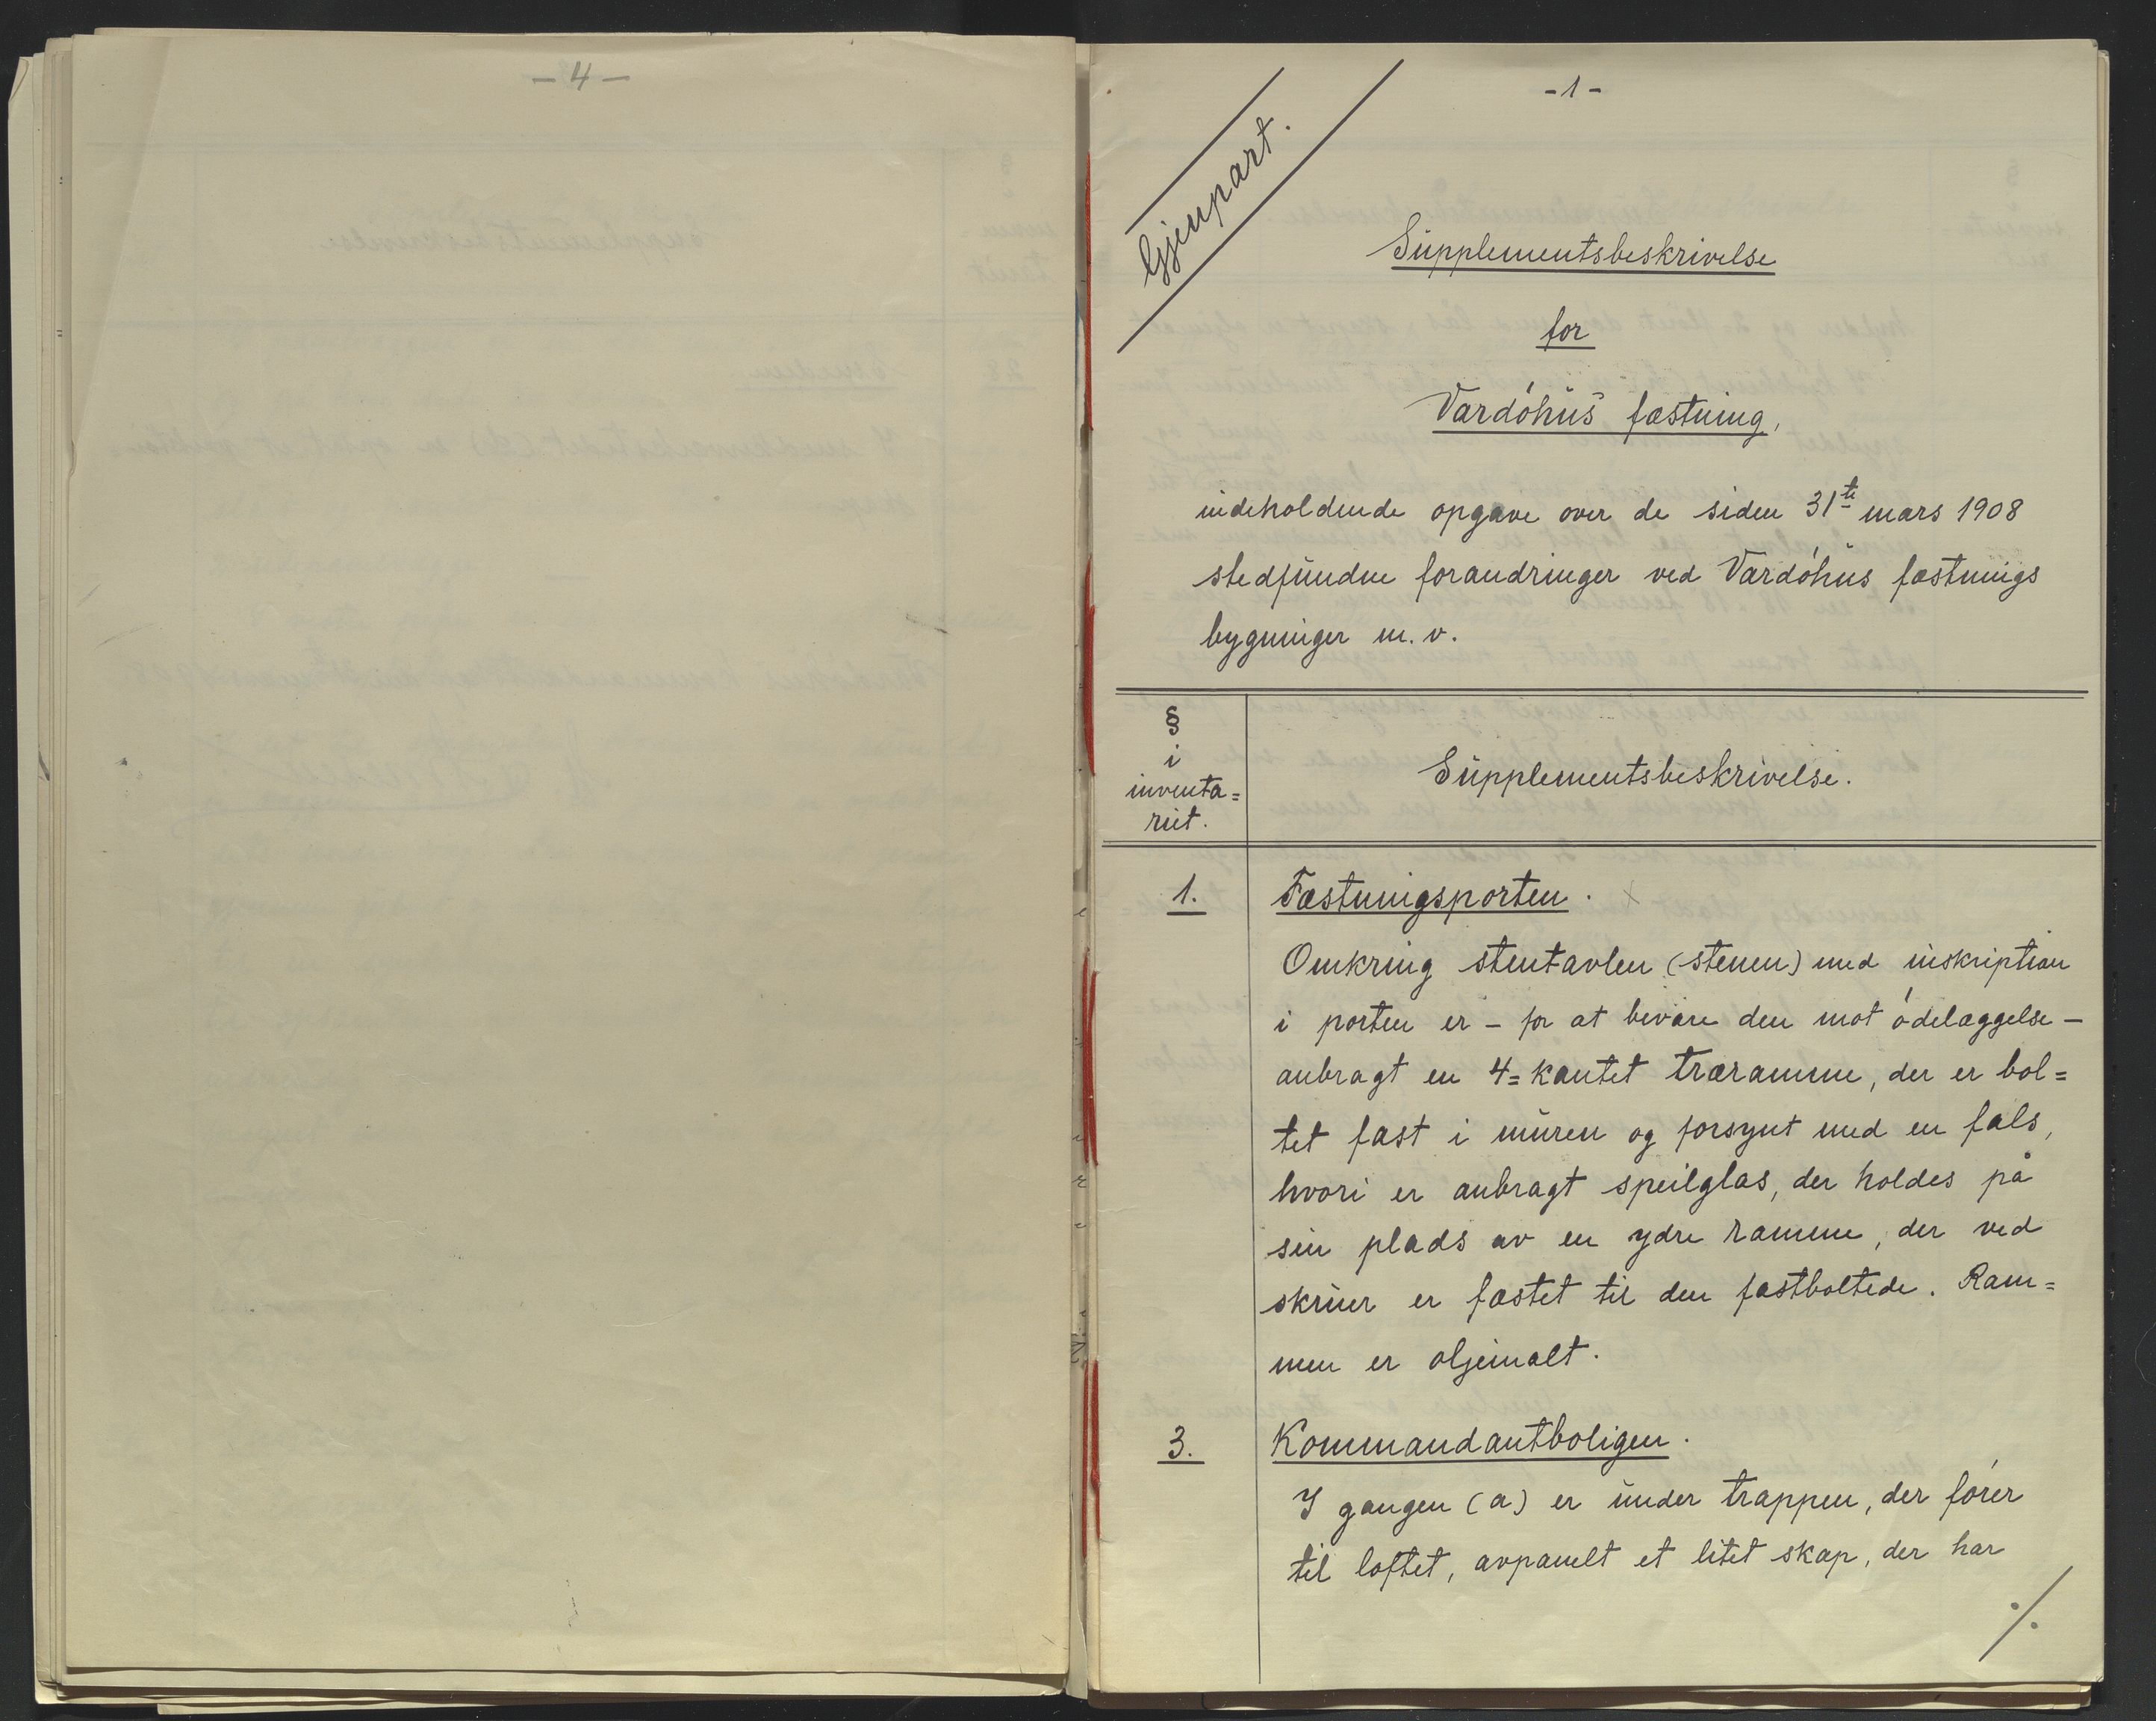 - 4 -
- 1 -
Gjenpart.
Supplementsbeskrivelse
for
Vardöhus fæstning,
indeholdende opgave over de siden 31te mars 1908
stedfundne forandringer ved Vardöhus fæstnings
bygninger m. v.
§
i
inventa=
riet.
Supplementsbeskrivelse.
1.
Fæstningsporten.
Omkring stentavlen (stenen) med inskription
i porten er - for at bevare den mot ödelæggelse -
anbragt en 4=kantet træramme, der er bol=
tet fast i muren og forsynt med en fals,
hvori er anbragt speilglas, der holdes på
sin plads av en ydre ramme, der ved
skruer er fæstet til den fastboltede. Ram=
men er oljemalt.
3.
Kommandantboligen.
I gangen (a) er under trappen, der förer
til loftet, avpanelt et litet skap, der har
./.